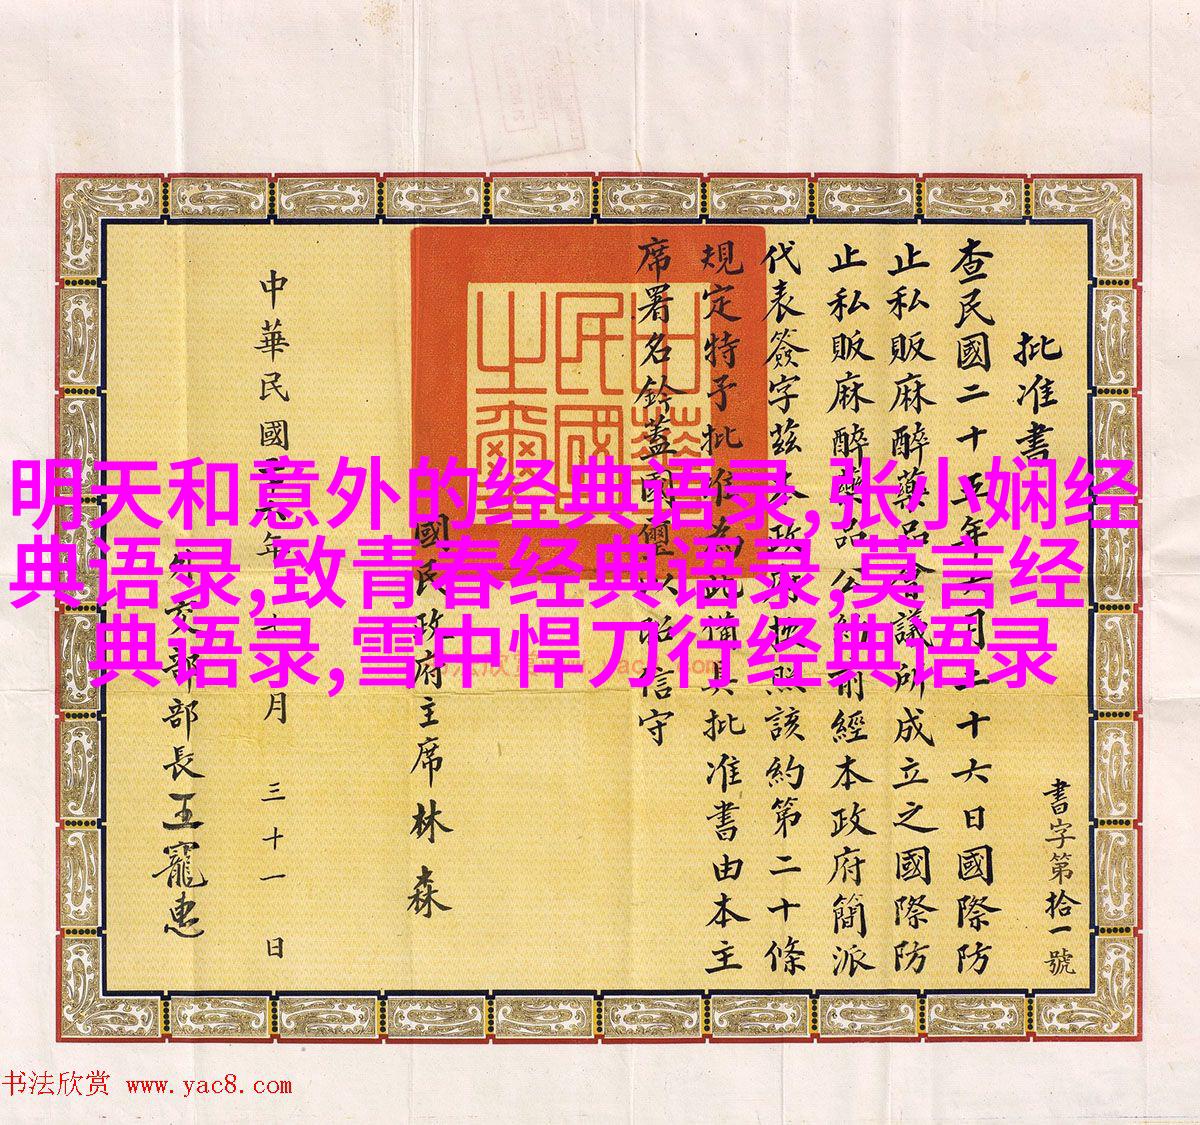 明天和意外的经典语录,张小娴经
典语录,致青春经典语录,莫言经
典语录,雪中悍刀行经典语录
批准書
查民國二十五年六月二十六日國際防
止私販麻醉藥品會議所成立之國際防
止私販麻醉藥品公約前經本政府簡派
代表簽字茲本政府按照該約第二十條
規定特予批准為此備具批准書由本主
席署名鈐蓋國璽以昭信守
中華民國之璽
國民政府主席林森
中華民國 年 月三十一日
外交部部長王寵惠
書字第拾一號
书法欣赏 www.yac8.com